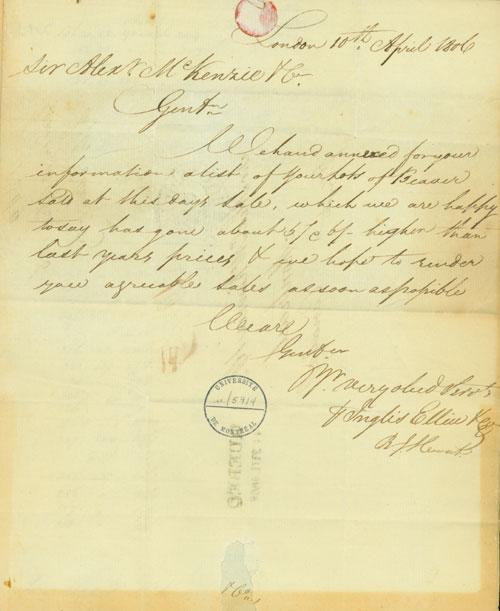 London 10th April 1806
Sir Alexr McKenzie & Co
Gentn
We hand annexed for your
information a list of your lots of Beaver
sold at this days sale, which we are happy
to say has gone about 5/ higher than
last years prices & we hope to render
you agreeable sales as soon as possible
We are
Gentn
Yr very obed Servts
Inglis Ellice & Co
UNIVERSITÉ
5714
DE MONTRÉAL